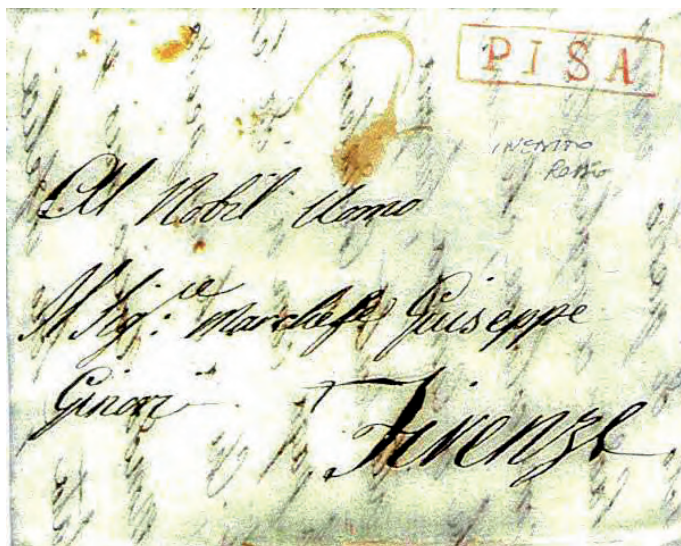 PISA
Al Nobil Uomo
Il Sig.re Marchese Giuseppe
Ginori
Firenze